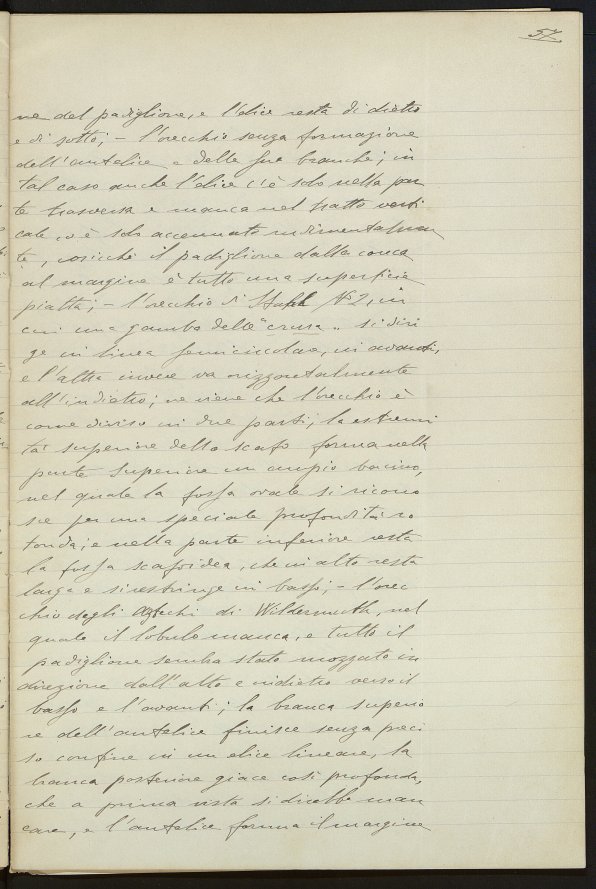 57.
ne del padiglione, e l'elice resta di dietro
e di sotto; – l'orecchio senza formazione
dell'antelice e delle sue branche; in
tal caso anche l'elice c'è solo nella par
te trasversa e manca nel tratto verti
cale, o è solo accennato rudimentalmen
te, cosicchè il padiglione dalla conca
al margine è tutto una superficie
piatta; – l'orecchio di Stahl N° 2, in
cui una gamba delle "crura" si diri
ge in linea semicircolare, in avanti,
e l'altra invece va orizzontalmente
all'indietro; ne viene che l'orecchio è
come diviso in due parti, la estremi
tà superiore dello scafo forma nella
parte superiore un ampio bacino,
nel quale la fossa ovale si ricono
sce per una speciale profondità ro
tonda; e nella parte inferiore resta
la fossa scafoidea, che in alto resta
larga e si restringe in basso; – l'orec
chio degli Aztechi di Wildermuth, nel
quale il lobulo manca, e tutto il
padiglione sembra stato mozzato in
direzione dall'alto e indietro verso il
basso e l'avanti; la branca superio
re dell'antelice finisce senza preci
so confine in un elice lineare, la
branca posteriore giace così profonda,
che a prima vista si direbbe man
care, e l'antelice forma il margine